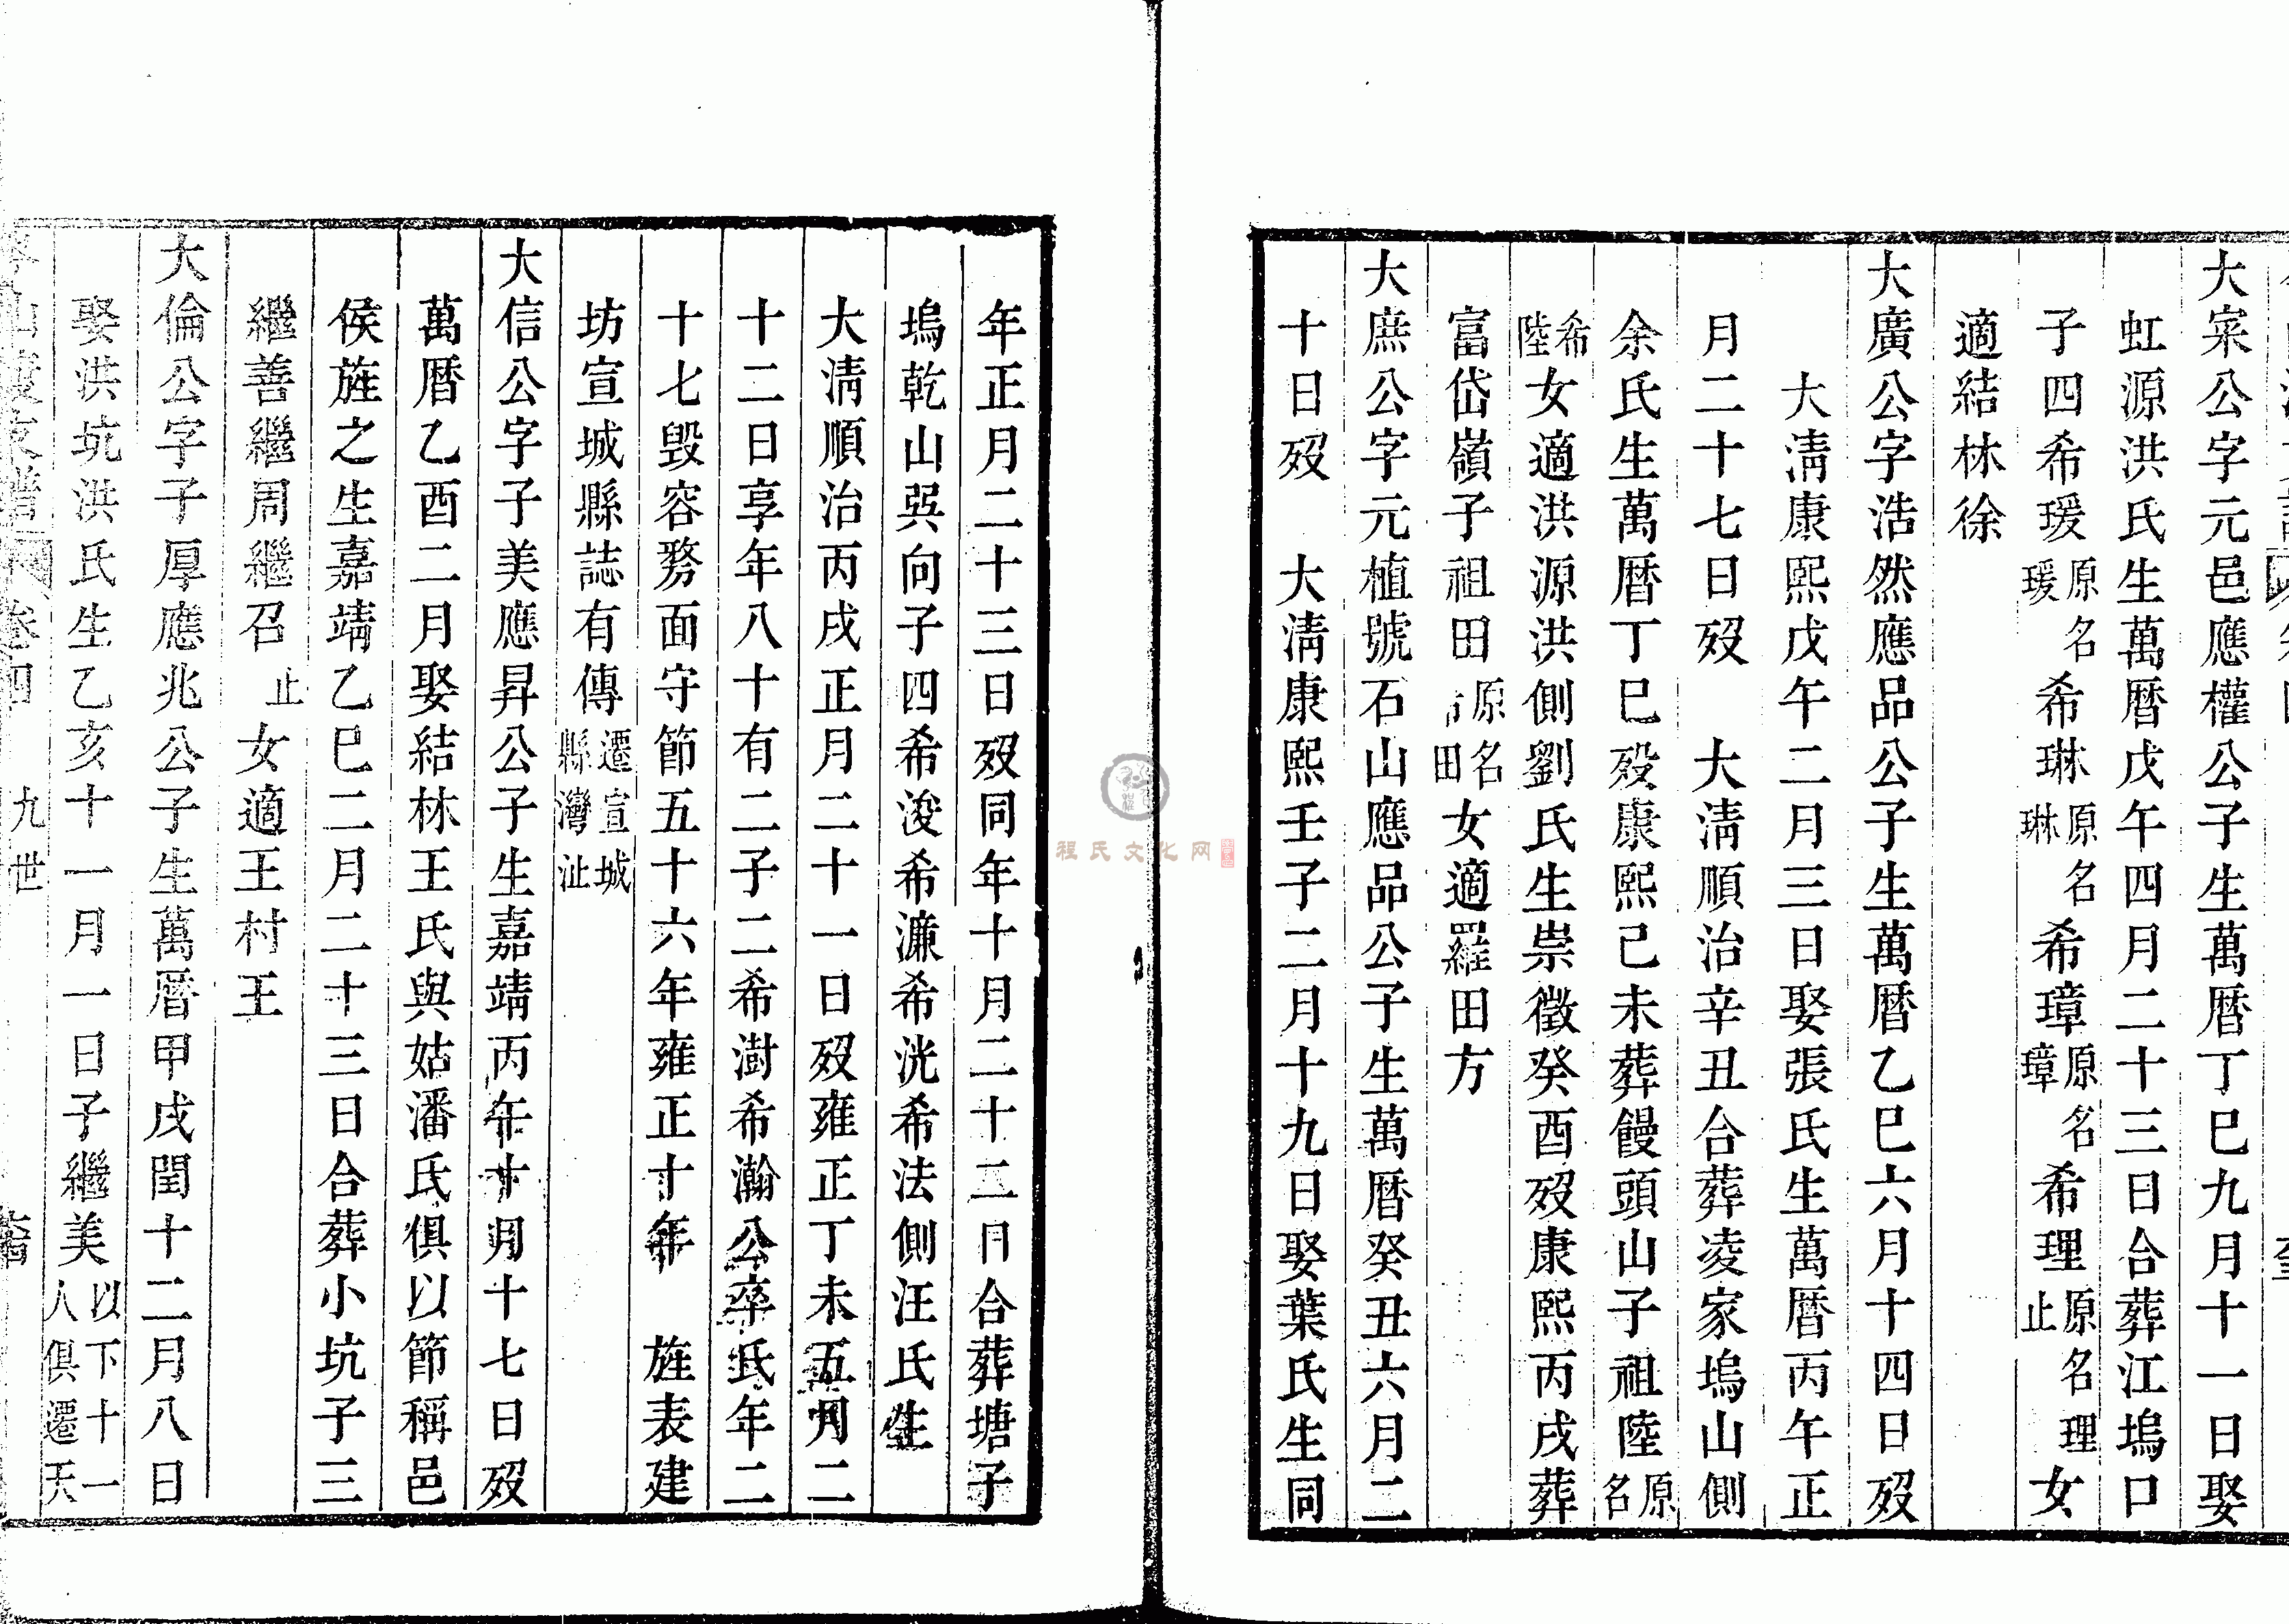 大寀公字元邑應權公子生萬曆丁巳九月十一日娶
虹源洪氏生萬曆戊午四月二十三日合葬江塢口
子四希瑗原名瑗希琳原名琳希璋原名璋希理原名理止女
適結林徐
大廣公字浩然應品公子生萬曆乙巳六月十四日歿
大清康熙戊午二月三日娶張氏生萬曆丙午正
月二十七日歿 大清順治辛丑合葬凌家塢山側
余氏生萬曆丁巳歿康熙己未葬饅頭山子祖陸原名
希陸女適洪源洪側劉氏生崇徵癸酉歿康熙丙戌葬
富岱嶺子祖田原名田女適羅田方
大庶公字元植號石山應品公子生萬曆癸丑六月二
十日歿 大清康熙壬子二月十九日娶葉氏生同
年正月二十三日歿同年十月二十二日合葬塘子
塢乾山巽向子四希浚希濂希洸希法側汪氏生
大清順治丙戌正月二十一日歿雍正丁未五月二
十二日享年八十有二子二希澍希瀚公卒氏年二
十七毀容剺面守節五十六年雍正十年 旌表建
坊宣城縣誌有傳遷宣城縣灣沚
大信公字子美應昇公子生嘉靖丙午十月十七日歿
萬曆乙酉二月娶結林王氏與姑潘氏俱以節稱邑
侯旌之生嘉靖乙巳二月二十三日合葬小坑子三
繼善繼周繼召止女適王村王
大倫公字子厚應兆公子生萬曆甲戌閏十二月八日
娶洪坑洪氏生乙亥十一月一日子繼美以下十一人俱遷天
卷四 九世
程氏文化网